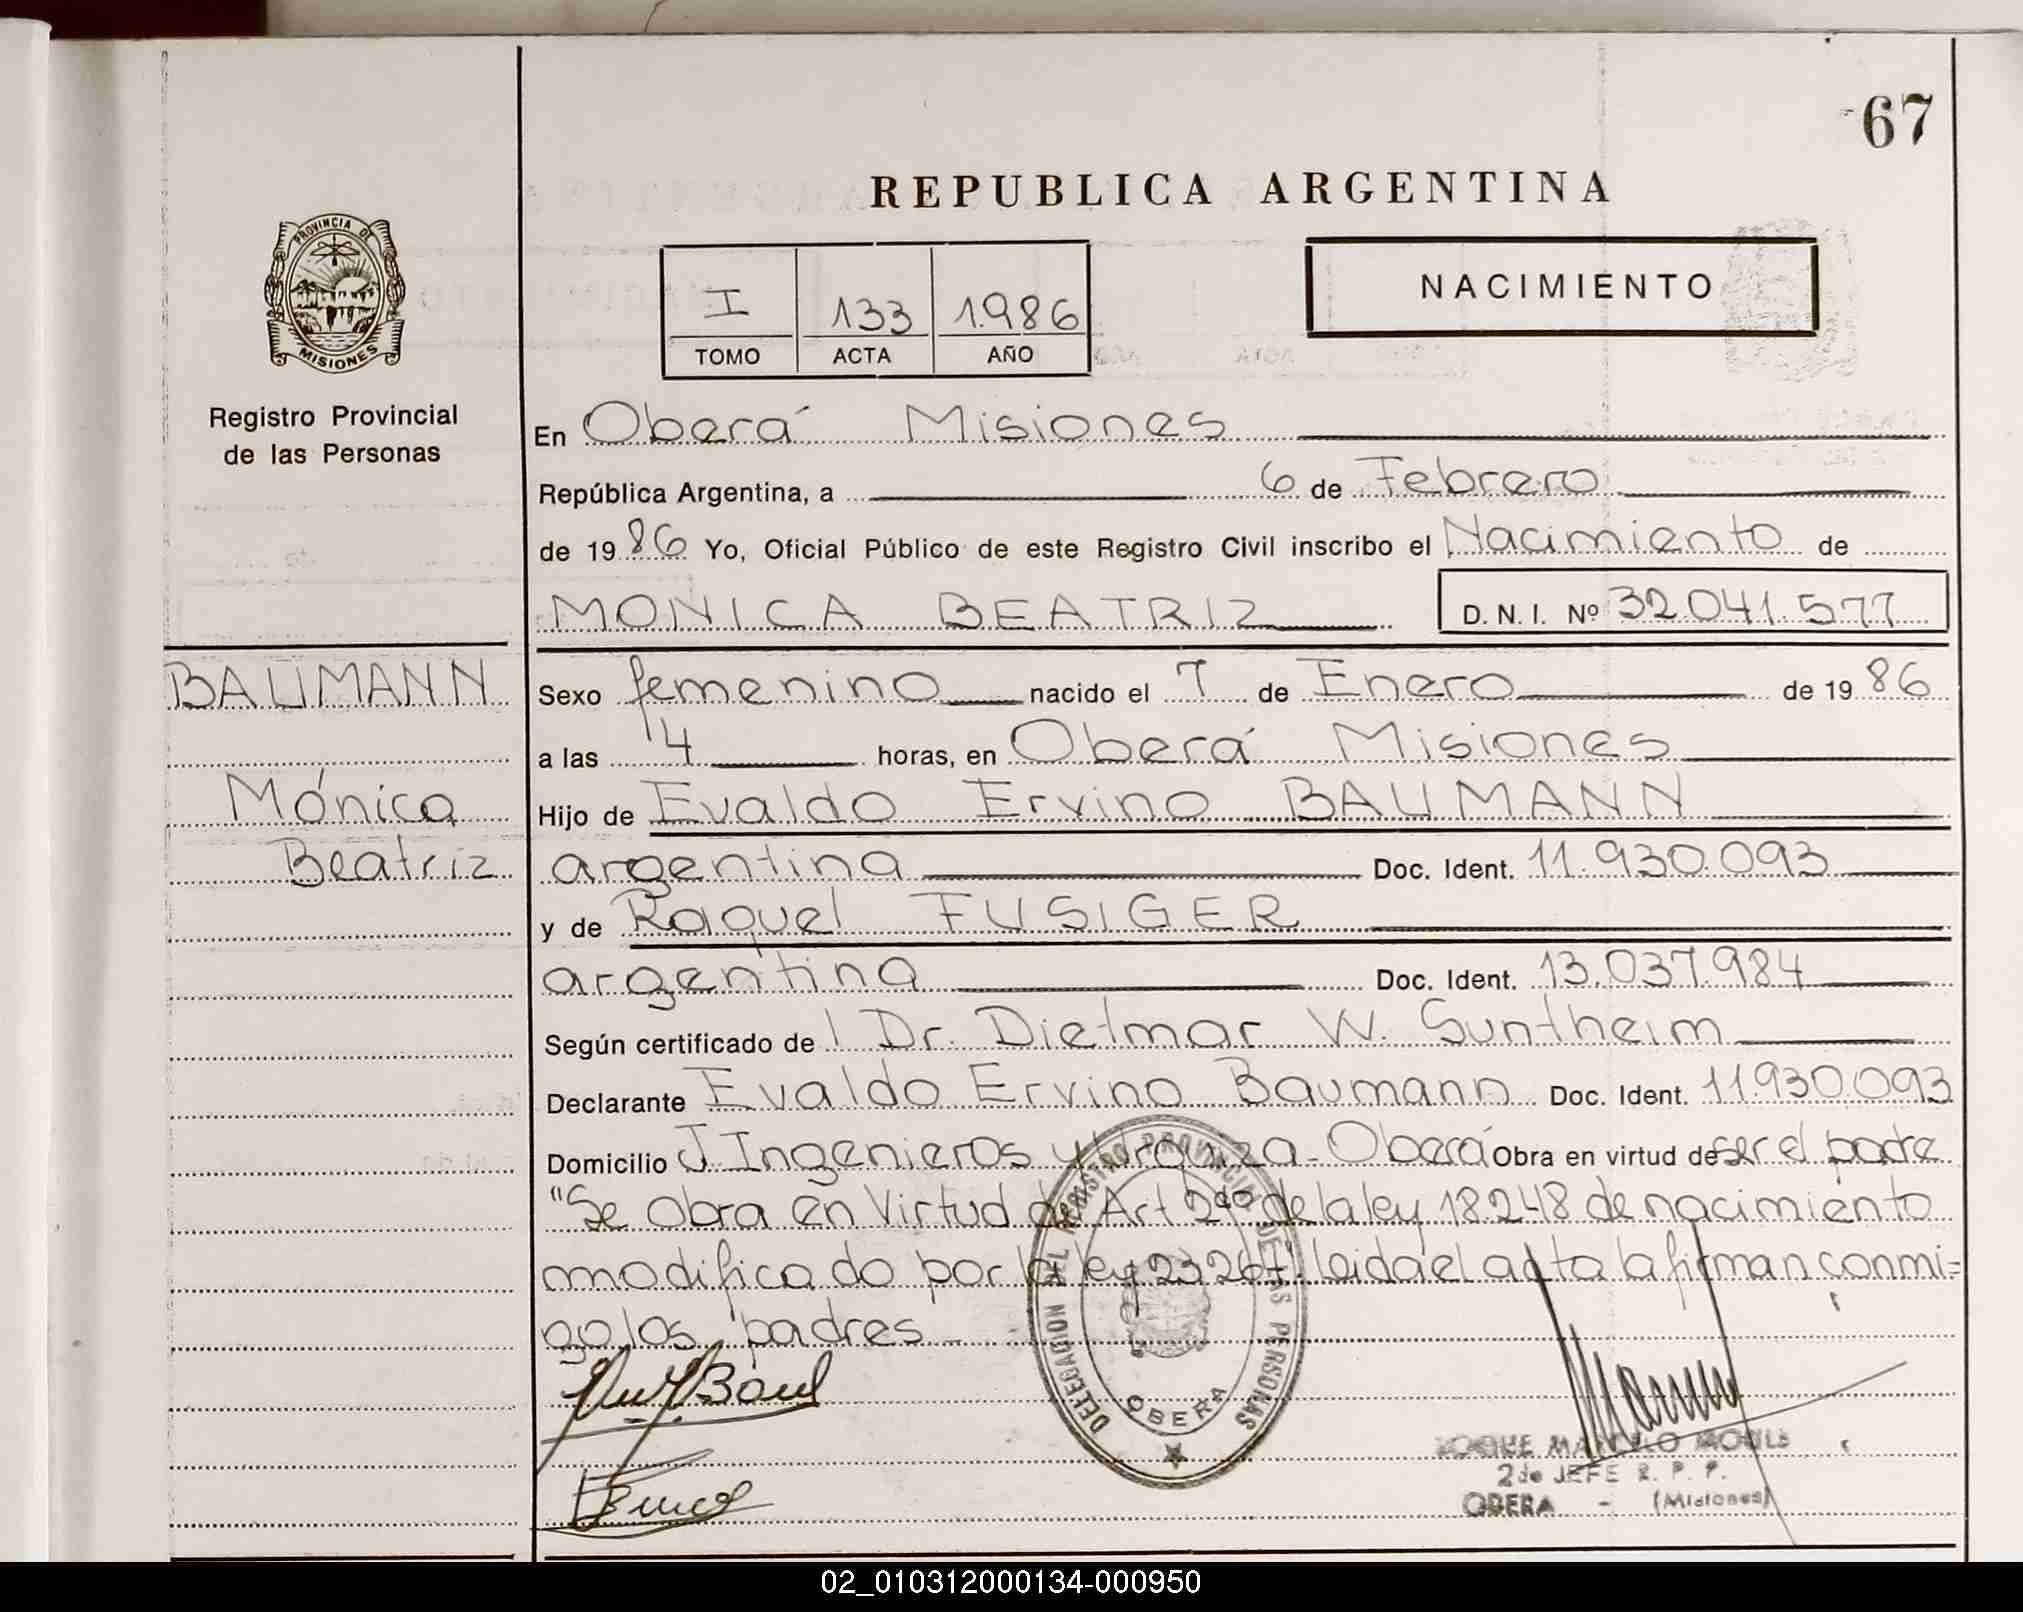 67
REPUBLICA ARGENTINA
PROVINCIA DE
MISIONES
Registro Provincial
de las Personas
I 133 1.986
TOMO ACTA AÑO
NACIMIENTO
En Oberá Misiones
República Argentina, a 6 de Febrero
de 1986 Yo, Oficial Público de este Registro Civil inscribo el Nacimiento de
MONICA BEATRIZ D. N. I. Nº 32.041.577
BAUMANN
Mónica
Beatriz
Sexo femenino nacido el 7 de Enero de 1986
a las 14 horas, en Oberá Misiones
Hijo de Evaldo Ervino BAUMANN
argentina Doc. Ident. 11.930.093
y de Raquel FUSIGER
argentina Doc. Ident. 13.037.984
Según certificado de l Dr. Dietmar W. Suntheim
Declarante Evaldo Ervino Baumann Doc. Ident. 11.930.093
Domicilio J. Ingenieros y Urquiza - Oberá Obra en virtud de ser el padre
"Se obra en Virtud de Art 2do de la ley 18.248 de nacimiento
modificado por la ley 23.264" leida el acta la firman conmi=
go los padres
DELEGACION DEL REGISTRO PROVINCIAL DE LAS PERSONAS
OBERA
2do JEFE R. P. P.
OBERA - (Misiones)
02_010312000134-000950